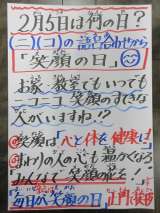 2月5日は何の日？
二(コ)の語呂合わせから
「笑顔の日」
お家、教室でもいつでも
ニコニコ笑顔のすてきな
人がいますね!?
笑顔は「心と体を健康に」
まわりの人の心も温かくなる
みんなで笑顔の花を！
毎日が笑顔の日